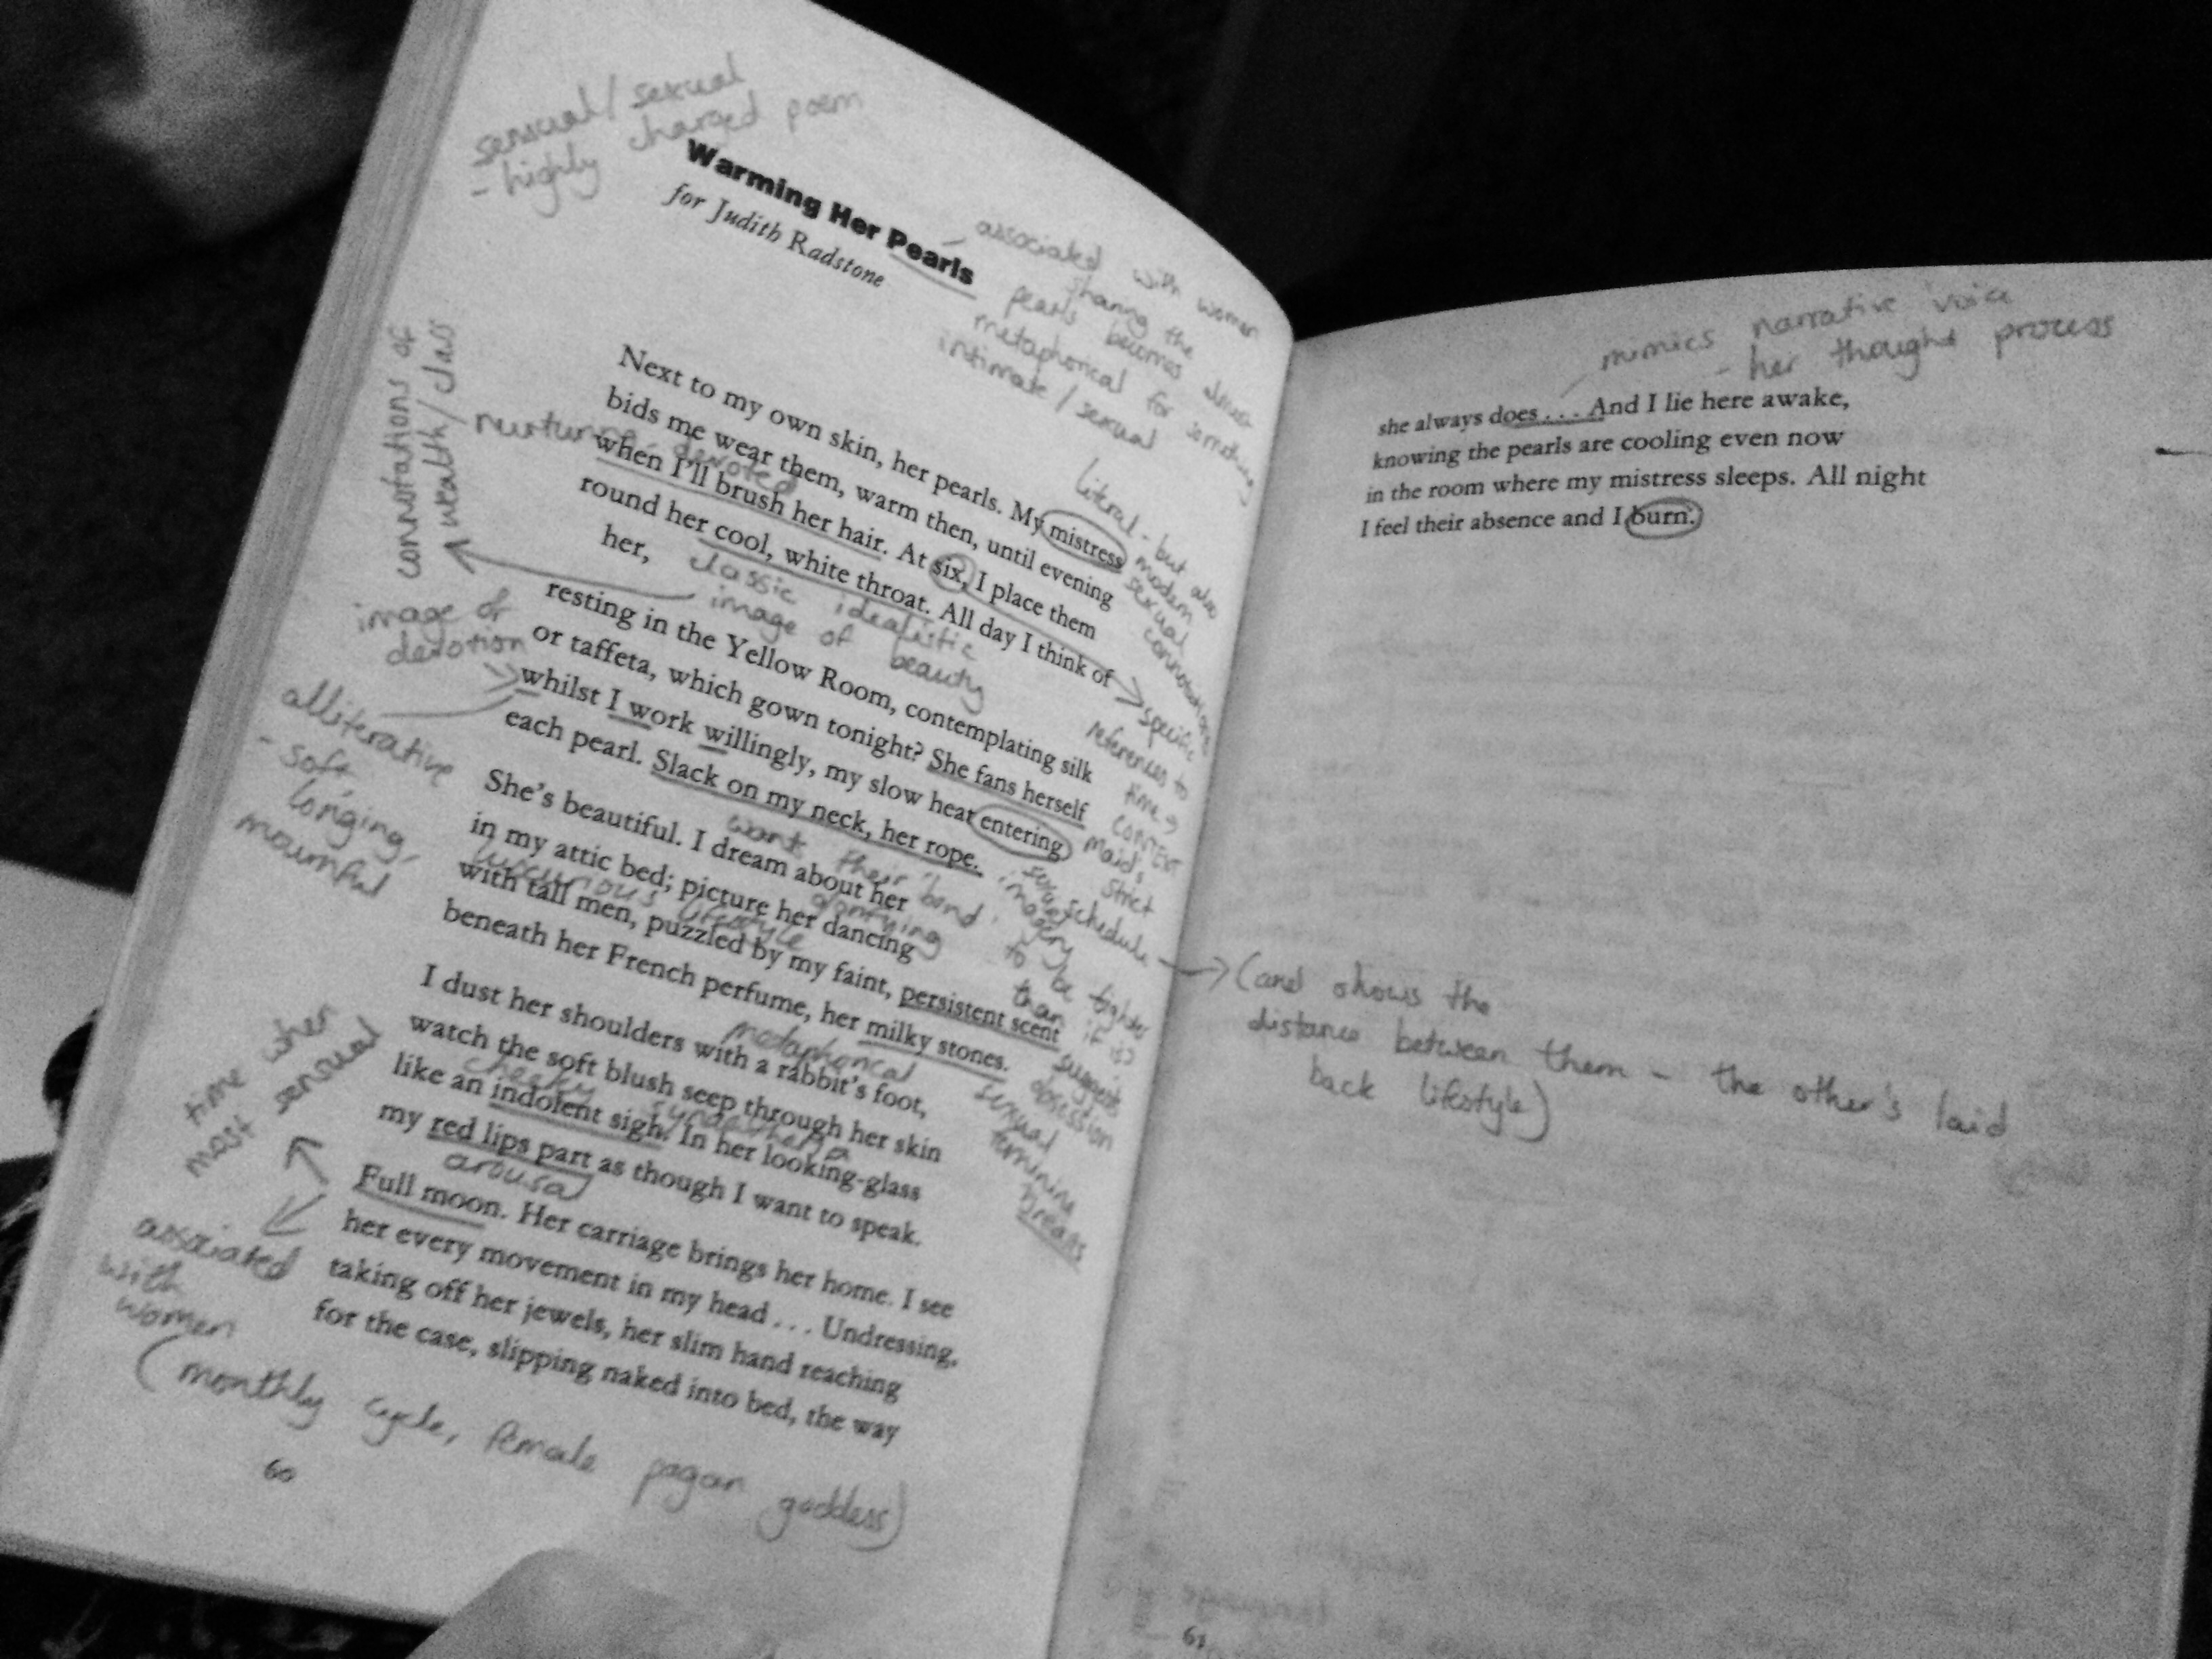 sensual/sexual
- highly charged poem
Warming Her Pearls
for Judith Radstone
associated with women
sharing the
pearls becomes almost
metaphorical for something
intimate/sexual
connotations of
wealth/class
nurturing, devoted
Next to my own skin, her pearls. My mistress
bids me wear them, warm them, until evening
when I'll brush her hair. At six, I place them
round her cool, white throat. All day I think of
her,
literal - but also
modern
sexual
connotations
classic idealistic
image of beauty
image of
devotion
resting in the Yellow Room, contemplating silk
or taffeta, which gown tonight? She fans herself
whilst I work willingly, my slow heat entering
each pearl. Slack on my neck, her rope.
specific
references to
time →
context
maid's
strict
schedule
alliterative
- soft,
longing,
mournful
want their 'bond'
to be tighter
than it is
sexual
imagery
She's beautiful. I dream about her
in my attic bed; picture her dancing
with tall men, puzzled by my faint, persistent scent
beneath her French perfume, her milky stones.
luxurious lifestyle
glorifying
suggests
obsession
metaphorical
sexual
feminine
breasts
I dust her shoulders with a rabbit's foot,
watch the soft blush seep through her skin
like an indolent sigh. In her looking-glass
my red lips part as though I want to speak.
cheeky
arousal
time when
most sensual
Full moon. Her carriage brings her home. I see
her every movement in my head . . . Undressing,
taking off her jewels, her slim hand reaching
for the case, slipping naked into bed, the way
associated
with
women
(monthly cycle, female pagan goddess)
60
mimics narrative voice
- her thought process
she always does . . . . And I lie here awake,
knowing the pearls are cooling even now
in the room where my mistress sleeps. All night
I feel their absence and I burn.
(and shows the
distance between them - the other's laid
back lifestyle)
61